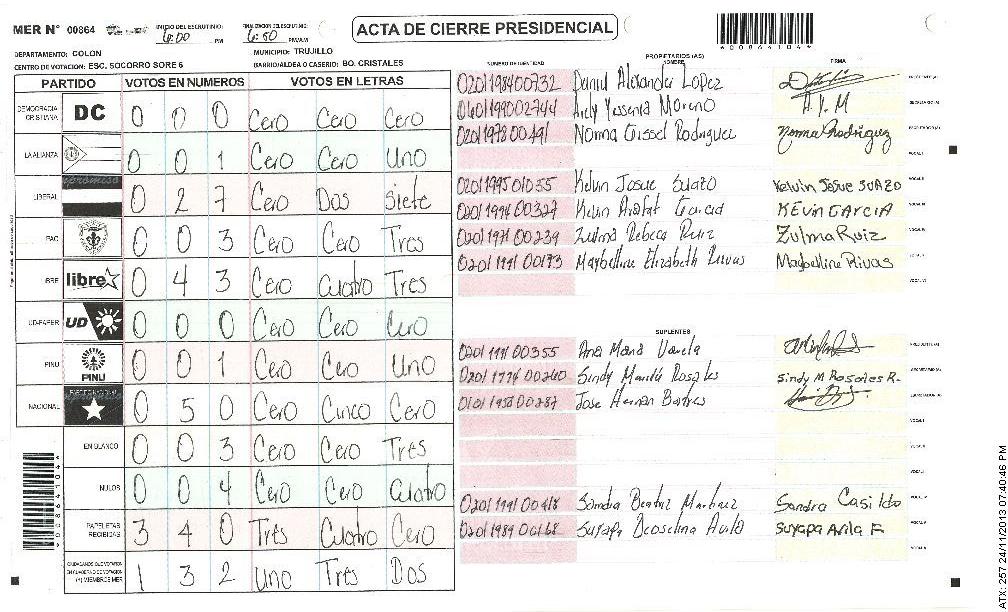 MER N° 00864
INICIO DEL ESCRUTINIO: 6:00 PM
FINALIZACION DEL ESCRUTINIO: 6:50 PM/AM
ACTA DE CIERRE PRESIDENCIAL
*00864104*
DEPARTAMENTO: COLON
MUNICIPIO: TRUJILLO
CENTRO DE VOTACION: ESC. SOCORRO SORE 6
BARRIO/ALDEA O CASERIO: BO. CRISTALES
PARTIDO VOTOS EN NUMEROS VOTOS EN LETRAS
DEMOCRACIA CRISTIANA DC 0 0 0 Cero Cero Cero
LA ALIANZA 0 0 1 Cero Cero Uno
LIBERAL 0 2 7 Cero Dos Siete
PAC 0 0 3 Cero Cero Tres
LIBRE libre 0 4 3 Cero Cuatro Tres
UD-FAPER UD 0 0 0 Cero Cero Cero
PINU PINU 0 0 1 Cero Cero Uno
NACIONAL 0 5 0 Cero Cinco Cero
EN BLANCO 0 0 3 Cero Cero Tres
NULOS 0 0 4 Cero Cero Cuatro
PAPELETAS RECIBIDAS 3 4 0 Tres Cuatro Cero
CIUDADANOS QUE VOTARON EN CUADERNO DE VOTACION (+) MIEMBROS MER 1 3 2 Uno Tres Dos
PROPIETARIOS (AS)
NUMERO DE IDENTIDAD NOMBRE FIRMA
0201198400732 Daniel Alexander Lopez
0601199002744 Arely Yessenia Moreno A.Y.M
0201197800491 Norma Gissel Rodriguez Norma Rodriguez
0201199501055 Kelvin Josue Suazo Kelvin Josue SUAZO
0201199400327 Kevin Arafat Garcia KEvin GARCIA
0201197100239 Zulma Rebeca Ruiz Zulma Ruiz
0201199100173 Maybelline Elizabeth Rivas Maybelline Rivas
SUPLENTES
0201199100355 Ana Maria Varela
0201177600260 Sindy Mariela Rosales Sindy M Rosales R.
0101195800287 Jose Hernan Batres
0201199100418 Sandra Beatriz Martinez Sandra Casildo
0201198900168 Suyapa Avila Suyapa Avila F
*00864104*
ATX: 257 24/11/2013 07:40:46 PM